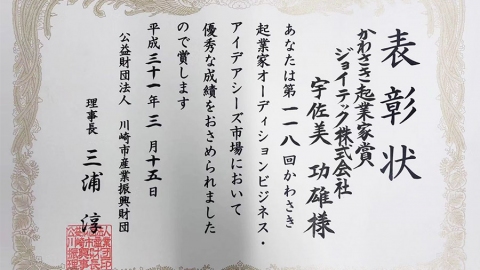 表彰状
かわさき起業家賞
ジョイテック株式会社
宇佐美 功雄様
あなたは第一一八回かわさき
起業家オーディションビジネス・
アイデアシーズ市場において
優秀な成績をおさめられました
ので賞します
平成三十一年三月十五日
公益財団法人 川崎市産業振興財団
理事長 三浦 淳